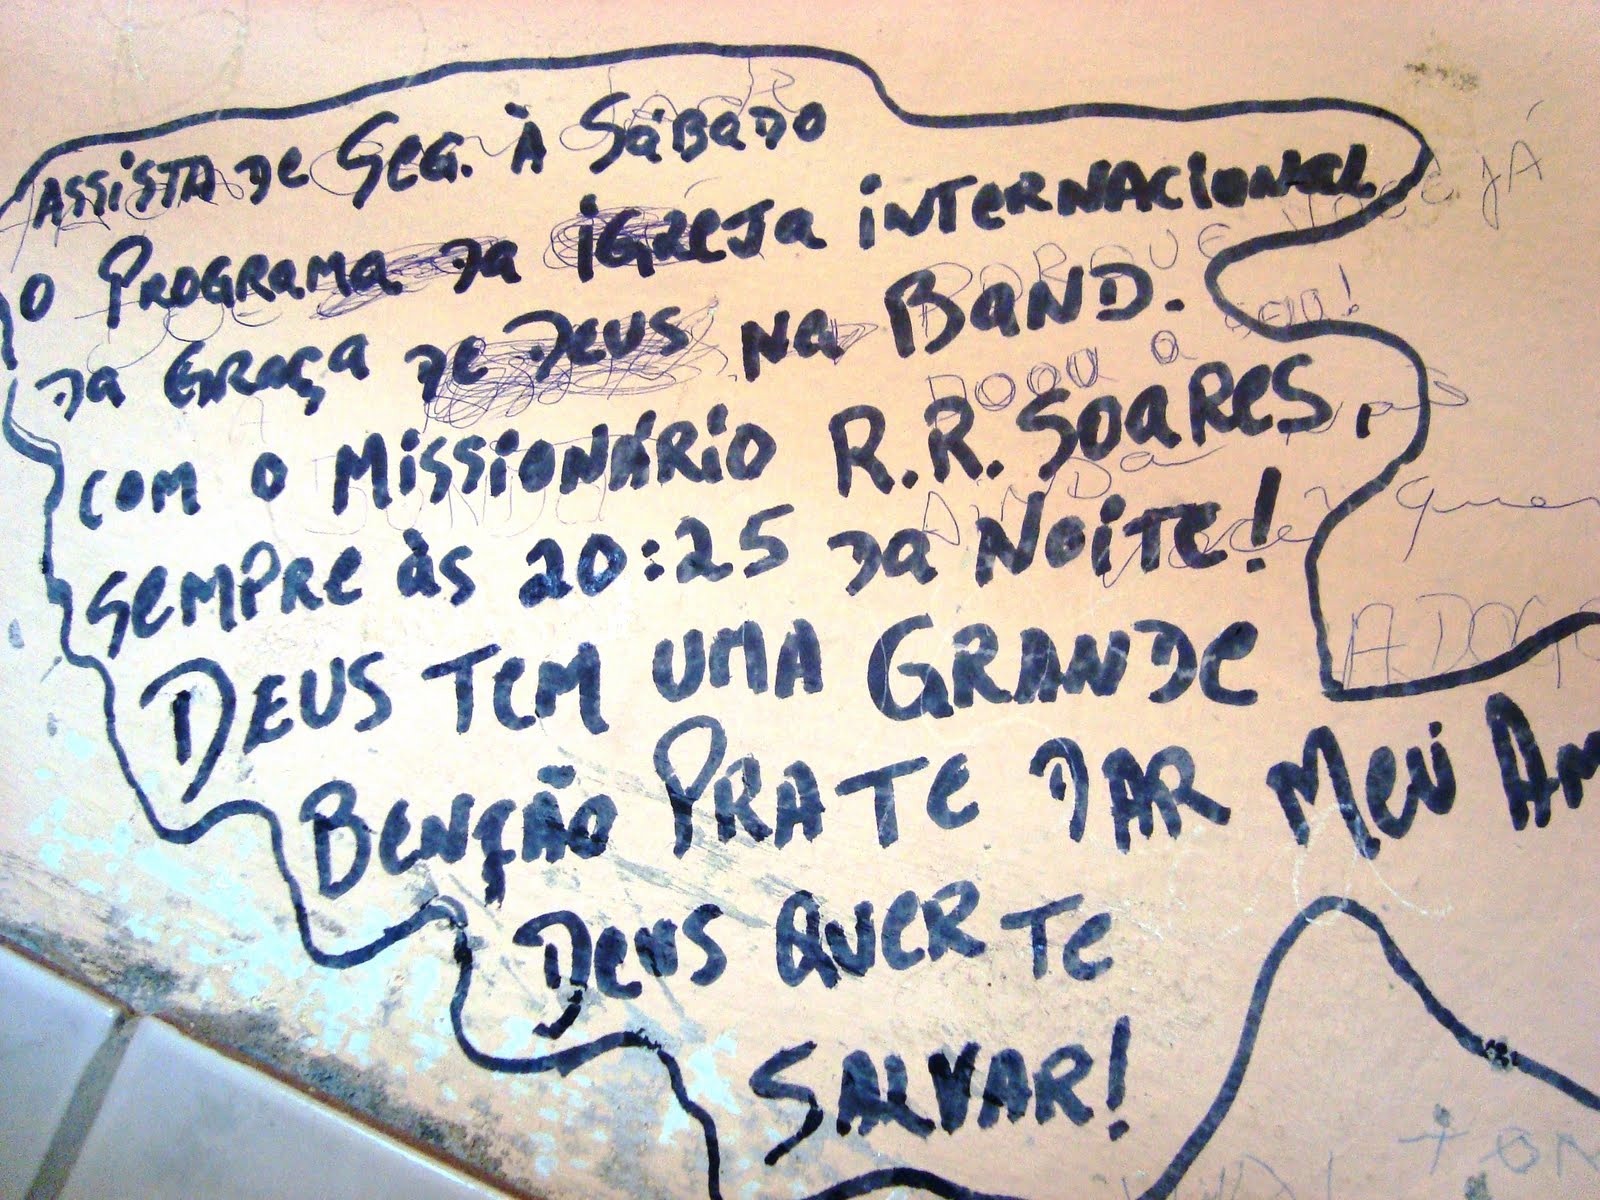 ASSISTA DE SEG. À SÁBADO
O PROGRAMA DA IGREJA INTERNACIONAL
DA GRAÇA DE DEUS NA BAND.
COM O MISSIONÁRIO R.R. SOARES,
SEMPRE ÀS 20:25 DA NOITE!
DEUS TEM UMA GRANDE
BENÇÃO PRA TE DAR MEU AM
DEUS QUER TE
SALVAR!